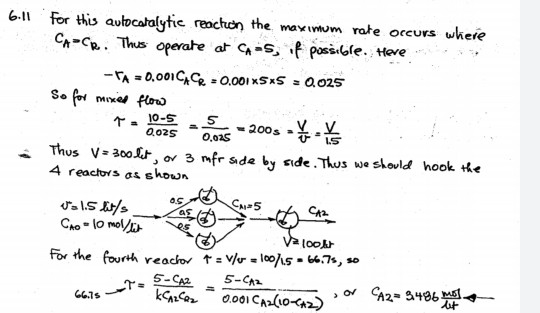 6.11 For this autocatalytic reaction the maximum rate occurs where
CA=CR. Thus operate at CA=5, if possible. Here
-rA = 0.001CACR = 0.001×5×5 = 0.025
So for mixed flow
τ = 10-5/0.025 = 5/0.025 = 200s = V/v = V/1.5
Thus V=300lit, or 3 mfr side by side. Thus we should hook the
4 reactors as shown
v=1.5 lit/s
CA0=10 mol/lit
0.5
0.5
0.5
CA1=5
CA2
V=100lit
For the fourth reactor τ=V/v=100/1.5=66.7s, so
66.7s τ = 5-CA2/kCA2CR2 = 5-CA2/0.001 CA2(10-CA2), or CA2= 3.486 mol/lit